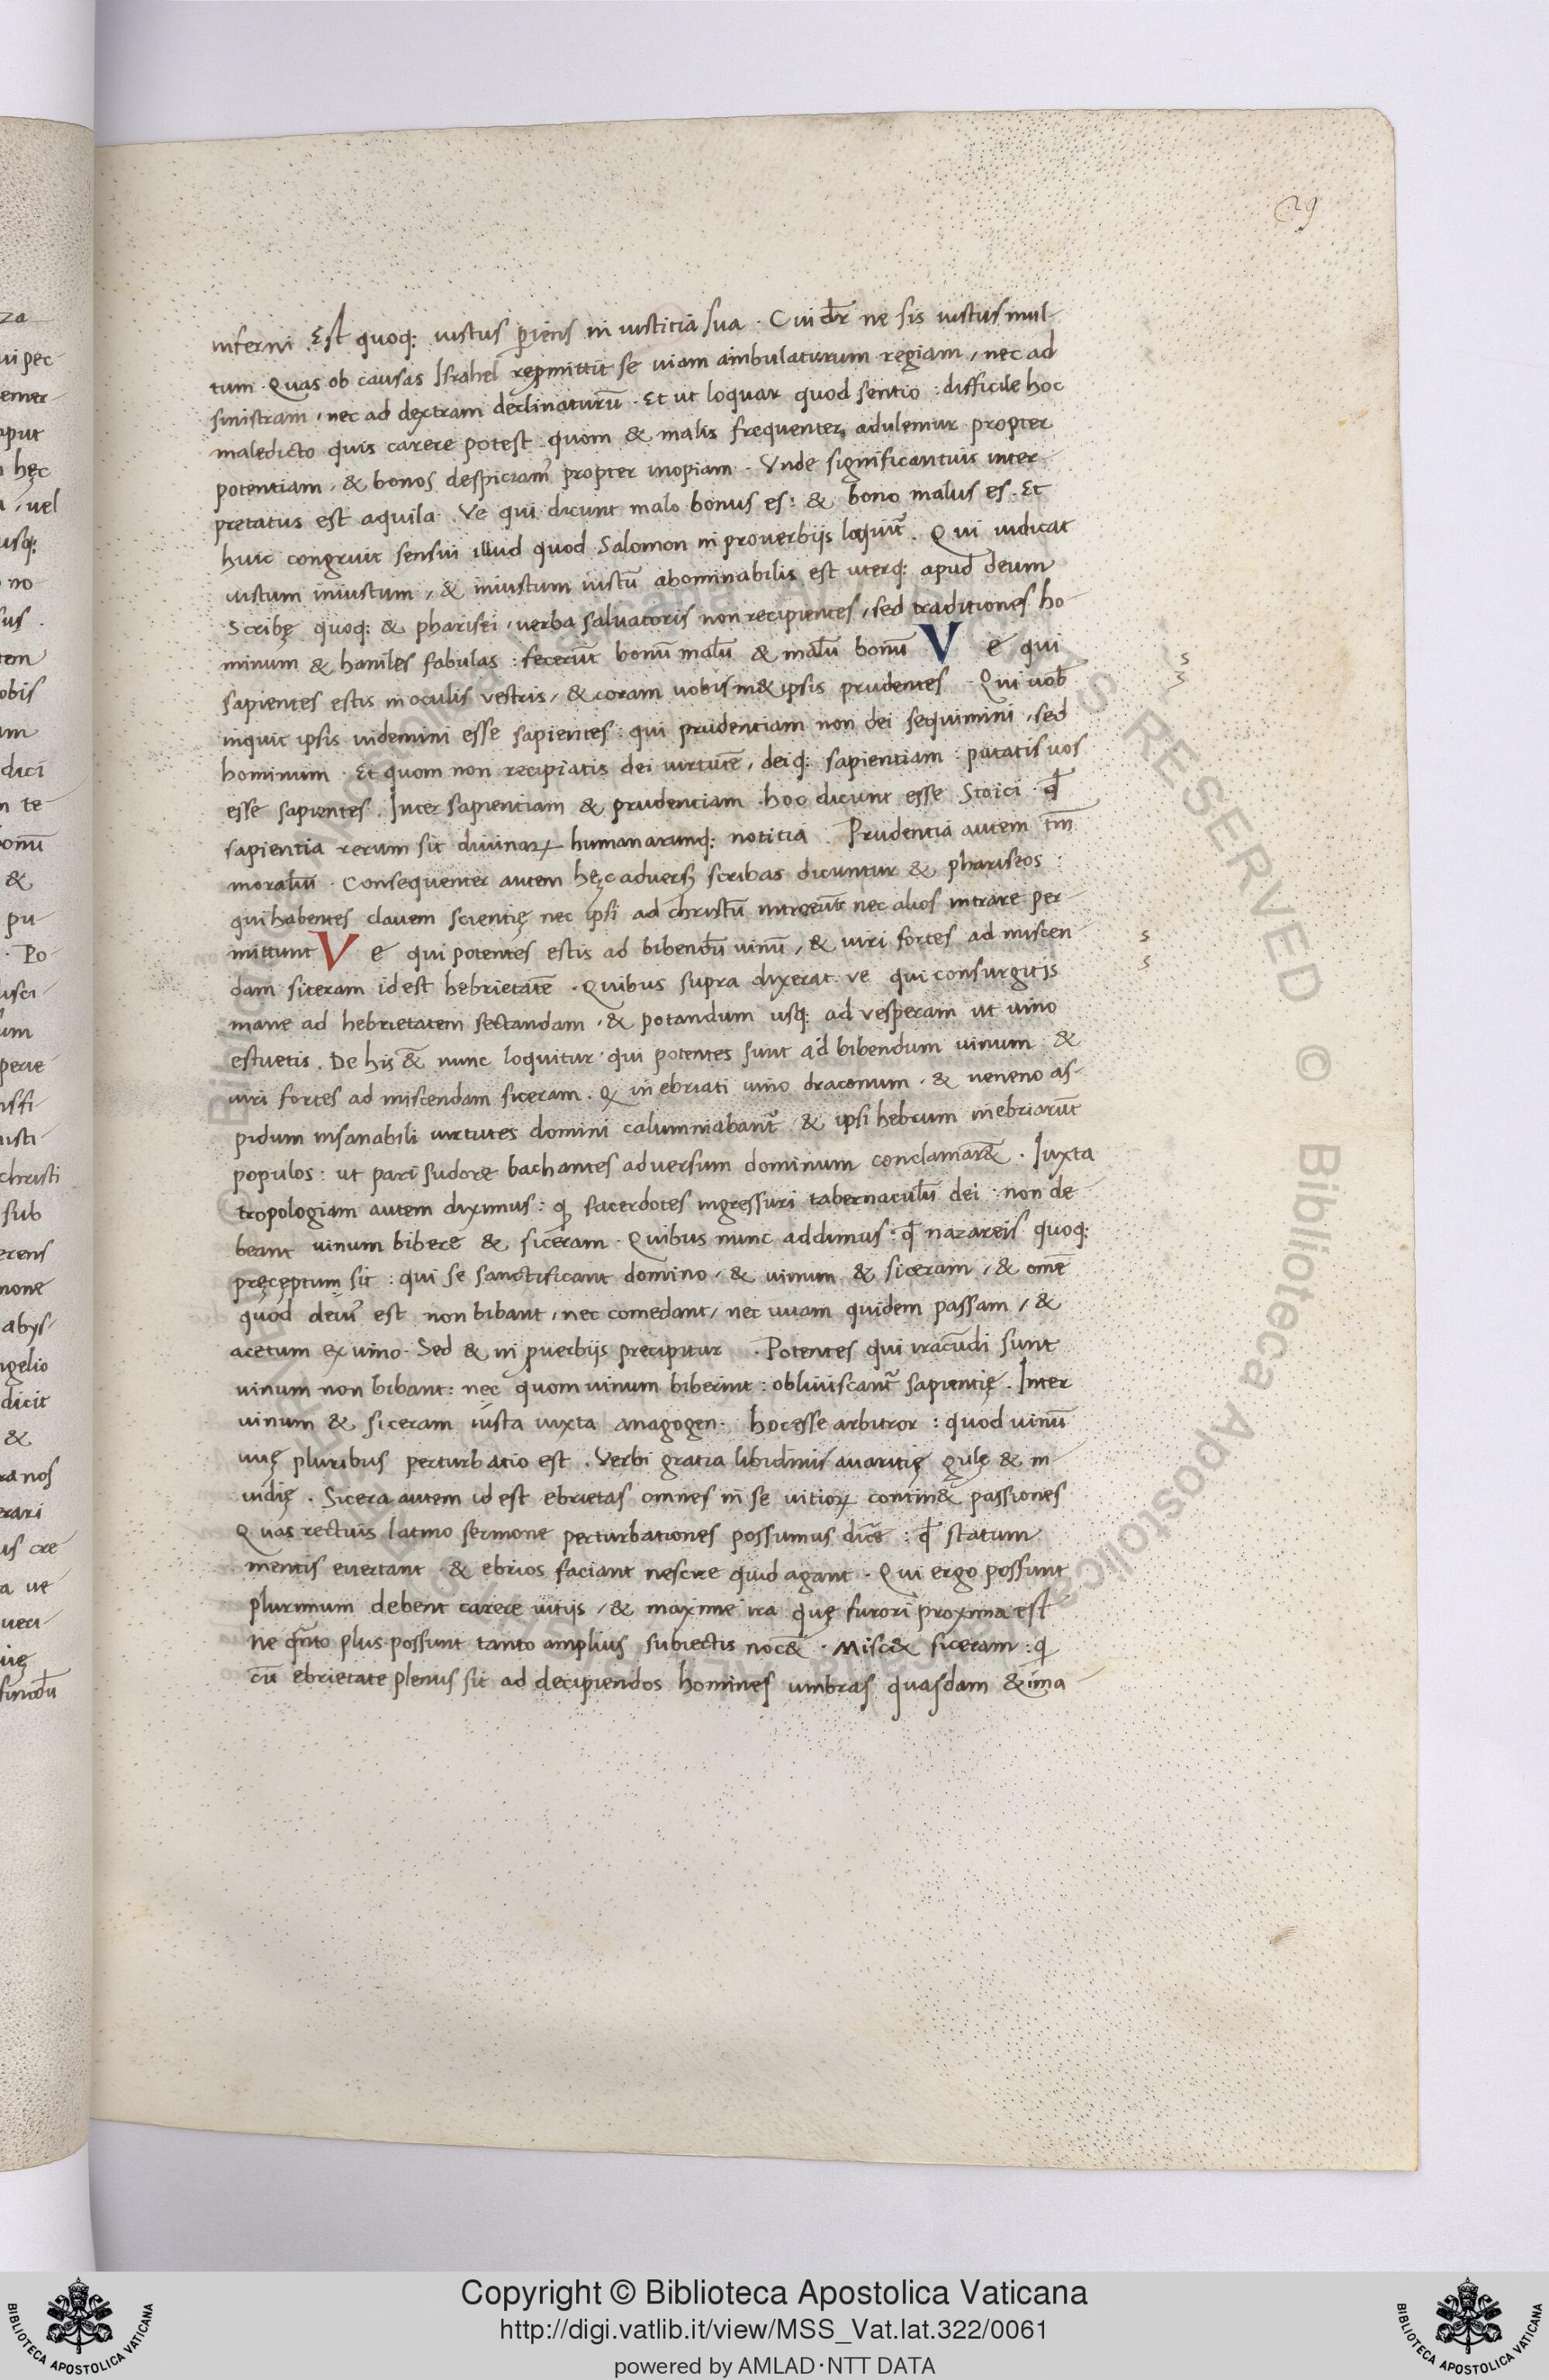 29
inferni. Est quoq; iustus ꝑiens in iusticia sua. Cui dr̄ ne sis iustus mul-
tum. Quas ob causas Israhel repmittit se uiam ambulaturum regiam, nec ad
sinistram, nec ad dextram declinaturū. Et ut loquar quod sentio: difficile hoc
maledicto quis carere potest. quom & malis frequenter adulemur propter
potentiam, & bonos despiciam᷒ propter inopiam. Vnde significantius inter-
pretatus est aquila. Ve qui dicunt malo bonus es: & bono malus es. Et
huic congruit sensui illud quod Salomon in prouerbijs loquit᷑. Qui iudicat
iustum iniustum, & iniustum iustū abominabilis est uterq; apud deum
Scribę quoq; & pharisei, uerba saluatoris non recipientes, sed traditiones ho-
minum & haniles fabulas: fecerūt bonū malū & malū bonū Ve qui
sapientes estis in oculis vestris, & coram uobis met ipsis prudentes. Qui uob̄
inquit ipsis uidemini esse sapientes: qui prudentiam non dei sequimini, sed
hominum. Et quom non recipiatis dei uirtutē, deiq; sapientiam: putatis uos
esse sapientes. Inter sapientiam & prudentiam hoc dicunt esse Stoici. qđ
sapientia rerum sit diuinaꝝ humanarumq; noticia. Prudentia autem tm̄
moraliū. Consequenter autem hęc aduersꝫ scribas dicuntur & phariseos:
qui habentes clauem scientię nec ipsi ad christū introeūt nec alios intrare per-
mittunt Ve qui potentes estis ad bibendū uinū, & uiri fortes ad miscen-
dam siceram id est hebrietatē. Quibus supra dixerat. ve qui consurgitis
mane ad hebrietatem sectandam, & potandum usq; ad vesperam ut uino
estuetis. De his &̄ nunc loquitur qui potentes sunt ad bibendum uinum &
uiri fortes ad miscendam siceram. Qꝫ inebriati uino draconum. & ueneno as-
pidum insanabili uirtutes domini calumniabant᷑ & ipsi hebrium inebriarūt
populos: ut pari sudore bachantes aduersum dominum conclamar&̄. Iuxta
tropologiam autem diximus: ꝙ sacerdotes ingressuri tabernaculū dei: non de-
beant uinum bibere & siceram. Quibus nunc addimus qđ nazareis quoq;
pręceptum sit: qui se sanctificant domino, & uinum & siceram, & omē
quod deui᷒ est non bibant, nec comedant, nec uuam quidem passam, &
acetum ex uino. Sed & in ꝓuerbijs precipitur. Potentes qui iracūdi sunt
uinum non bibant: nec quom uinum biberint: obliuiscant᷑ sapientię. Inter
uinum & siceram iusta iuxta anagogen. hoc esse arbitror: quod uinū
uię pluribus perturbatio est. Verbi gratia libidinis auaritię gulę & in-
uidię. Sicera autem id est ebrietas omnes in se uitioꝝ contin& passiones
Quas rectius latino sermone perturbationes possumus dicē: qđ statum
mentis euertant & ebrios faciant nescire quid agant. Qui ergo possunt
plurimum debent carere uitijs, & maxime ira quę furori proxima est
ne qn̄to plus possunt tanto amplius subiectis noc&̄. Misc& siceram: ꝙ
cū ebrietate plenus sit ad decipiendos homines umbras quasdam & ima-
Copyright © Biblioteca Apostolica Vaticana
http://digi.vatlib.it/view/MSS_Vat.lat.322/0061
powered by AMLAD·NTT DATA